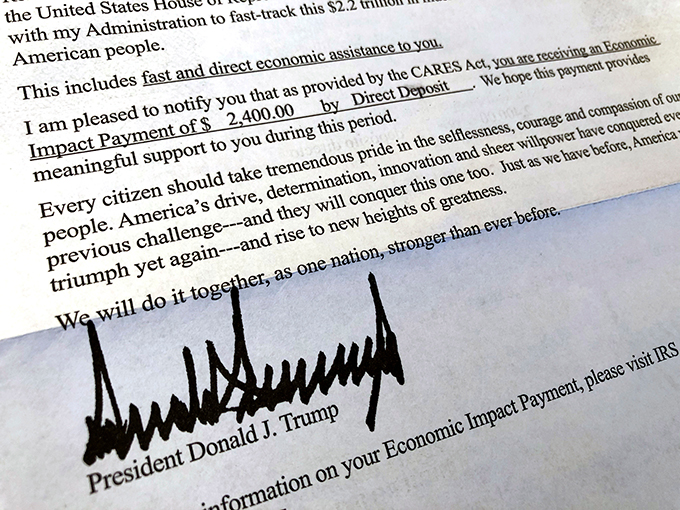 the United States House of
with my Administration to fast-track this $2.2 trillion in
American people.
This includes fast and direct economic assistance to you.
I am pleased to notify you that as provided by the CARES Act, you are receiving an Economic
Impact Payment of $ 2,400.00 by Direct Deposit. We hope this payment provides
meaningful support to you during this period.
Every citizen should take tremendous pride in the selflessness, courage and compassion of our
people. America's drive, determination, innovation and sheer willpower have conquered eve
previous challenge---and they will conquer this one too. Just as we have before, America
triumph yet again---and rise to new heights of greatness.
We will do it together, as one nation, stronger than ever before.
President Donald J. Trump
information on your Economic Impact Payment, please visit IRS